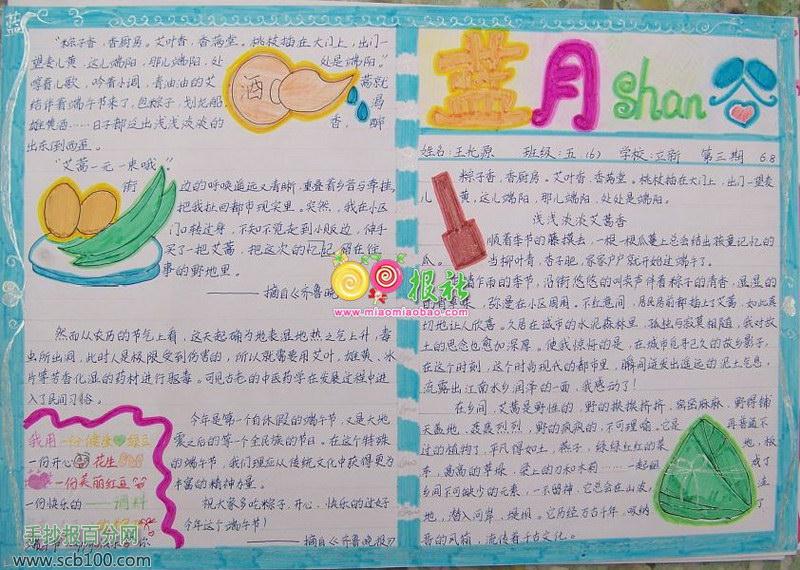 “粽子香，香厨房。艾叶香，香满堂。桃枝插在大门上，出门一
望麦儿黄，这儿端阳，那儿端阳，处处是端阳。”
哼着儿歌，吟着小调，青油油的艾蒿就
结伴着端午节来了，包粽子，划龙船，酒
雄黄酒……日子都这出浅浅淡淡的香，醉
出农
酒
“艾蒿一元一束哦！”
街边的呼唤遥远又清晰，重叠着乡音与牵挂
把我扯回都市现实里。突然，我在小区
门口转过身，不知不觉走到小贩边，伸手
买了一把艾蒿，把这次的记忆留在往
事的野地里。
——摘自《齐鲁晚
然而从农历的节气上看，这天起确为地表湿地热之气上升，毒
虫所出洞，此时人是极限受到伤害的，所以就需要用艾叶，雄黄，冰
片等芳香化湿的药材进行驱毒。可见古老的中医药学在发展过程中进
入了民间习俗。
今年是第一个自休假的端午节，又是大地
震之后的第一个全民族的节日，在这个特殊
的端午节，我们理应从传统文化中获得更为
丰富的精神力量。
祝大家多吃粽子，开心、快乐的过好
今年这个端午节！
——摘自《齐鲁晚报》
我用一份健康绿豆
一份开心花生
一份美丽红豆
一份快乐的——调料
蓝月shan谷
姓名：王 源 班级：五（6） 学校： 第三期 6.8
粽子香，香厨房。艾叶香，香满堂。桃枝插在大门上，出门一望麦
儿黄，这儿端阳，那儿端阳，处处是端阳。
浅浅淡淡艾蒿香
顺着季节的藤摸去，一根一根瓜蔓上总会结出挨量记忆的
瓜。当柳叶青，杏子肥，家家户户就开始过端午了。
市的季节，沿街悠悠的叫卖声伴着粽子的清香，湿湿的
的青草味，弥漫在小区周围。不经意间，居民房前都插上了艾蒿，如此亲
切地让人欣喜。久居在城市的水泥森林里，孤独与寂莫相随，我对故
土的思念也愈加深厚。使我惊悸的是，在城市危乎已久的故乡影子，
在这个时刻，这个时尚现代的都市里，瞬间迸发出遥远的泥土气息，
流露出江南水乡润泽的一面，我感动了！
在乡间，艾蒿是野性的，野的挨挨挤挤，密密麻麻，野得铺
天盖地，轰轰烈烈，野的疯疯的，不可理喻，它是再普通不
过的植物了，平凡得如土，燕子，绿绿红红的菜地，板
车，高高的草垛，梁上的刀和木莉……一起组成了
乡间不可缺少的元素，一不留神，它总会在山坡，洼
地，潜入河岸，堤坝。它历经万古千年，吸纳
着的风箱，流传着千古文化。
报社
www.miaomiaobao.com
手抄报百分网
www.scb100.com